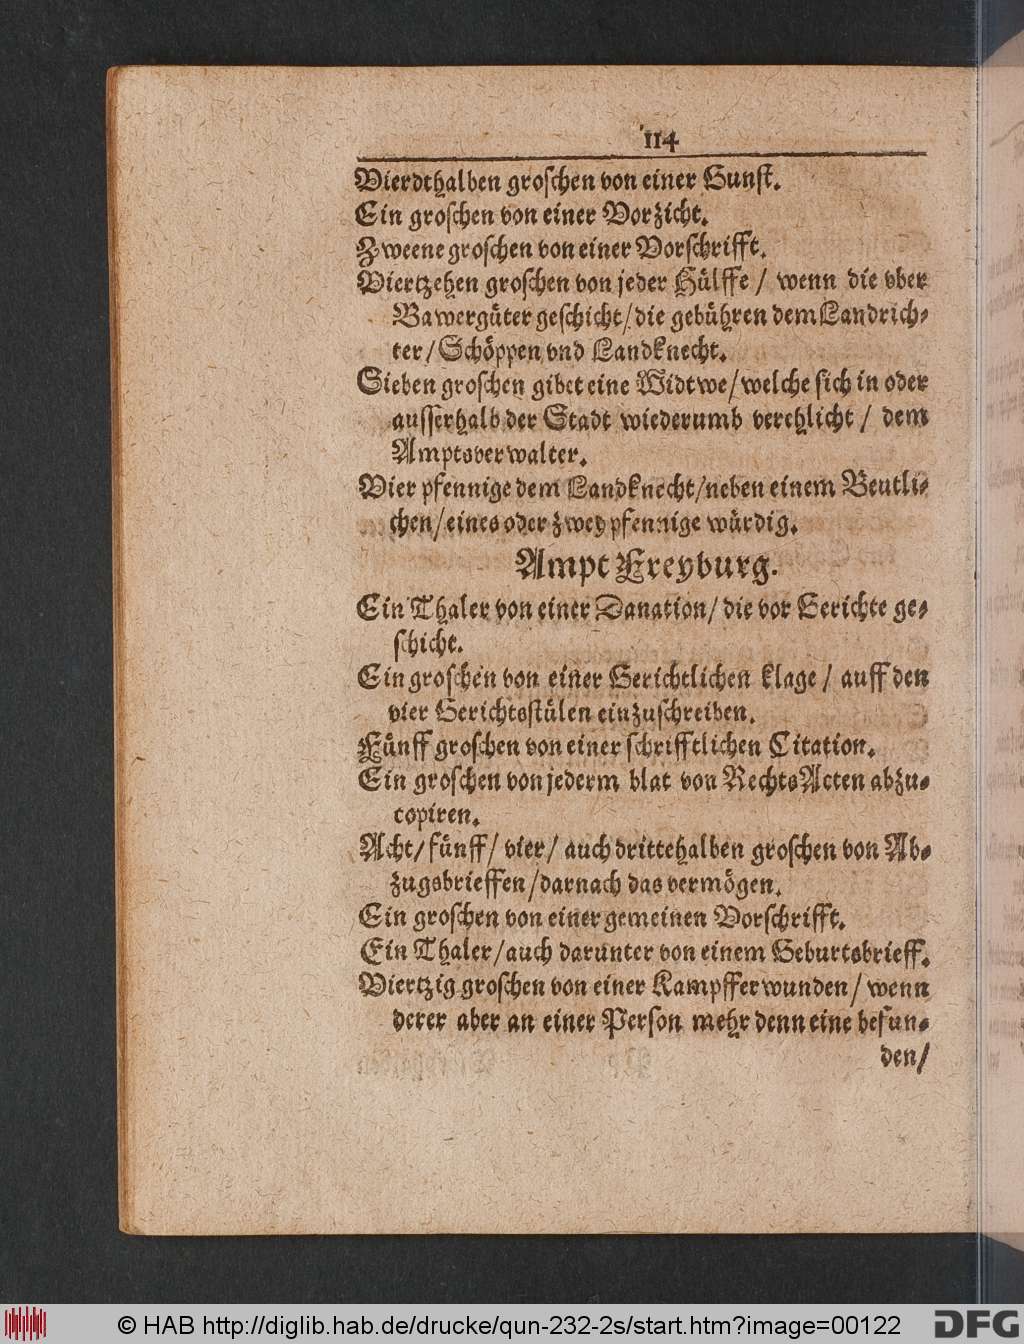 114
Vierdthalben groschen von einer Gunst.
Ein groschen von einer Vorzicht.
Zweene groschen von einer Vorschrifft.
Viertzehen groschen von jeder Hülffe / wenn die vber
Bawergüter geschicht / die gebühren dem Landrich-
ter / Schöppen vnd Landknecht.
Sieben groschen gibet eine Widtwe / welche sich in oder
ausserhalb der Stadt wiederumb verehlicht / dem
Amptsverwalter.
Vier pfennige dem Landknecht / neben einem Beutli-
chen / eines oder zwey pfennige würdig.
Ampt Freyburg.
Ein Thaler von einer Danation / die vor Gerichte ge-
schicht.
Ein groschen von einer Gerichtlichen klage / auff den
vier Gerichtsstülen einzuschreiben.
Fünff groschen von einer schrifftlichen Citation.
Ein groschen von jederm blat von RechtsActen abzu-
copiren.
Acht / fünff / vier / auch drittehalben groschen von Ab-
zugsbrieffen / darnach das vermögen.
Ein groschen von einer gemeinen Vorschrifft.
Ein Thaler / auch darunter von einem Geburtsbrieff.
Viertzig groschen von einer Kampfferwunden / wenn
derer aber an einer Person mehr denn eine befun-
den /
© HAB http://diglib.hab.de/drucke/qun-232-2s/start.htm?image=00122
DFG